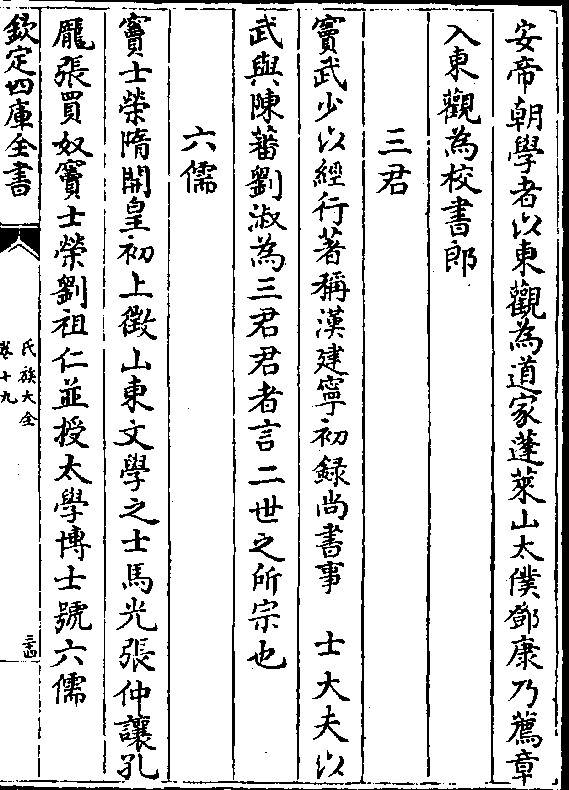 安帝朝學者以東觀為道家蓬萊山太僕鄧康乃薦章
入東觀為校書郎
三君
竇武少以經行著稱漢建寧初録尚書事　士大夫以
武與陳蕃劉淑為三君君者言二世之所宗也
六儒
竇士榮隋開皇初上徵山東文學之士馬光張仲讓孔
龎張買奴竇士榮劉祖仁並授太學博士號六儒
欽定四庫全書
氏族大全
卷十九